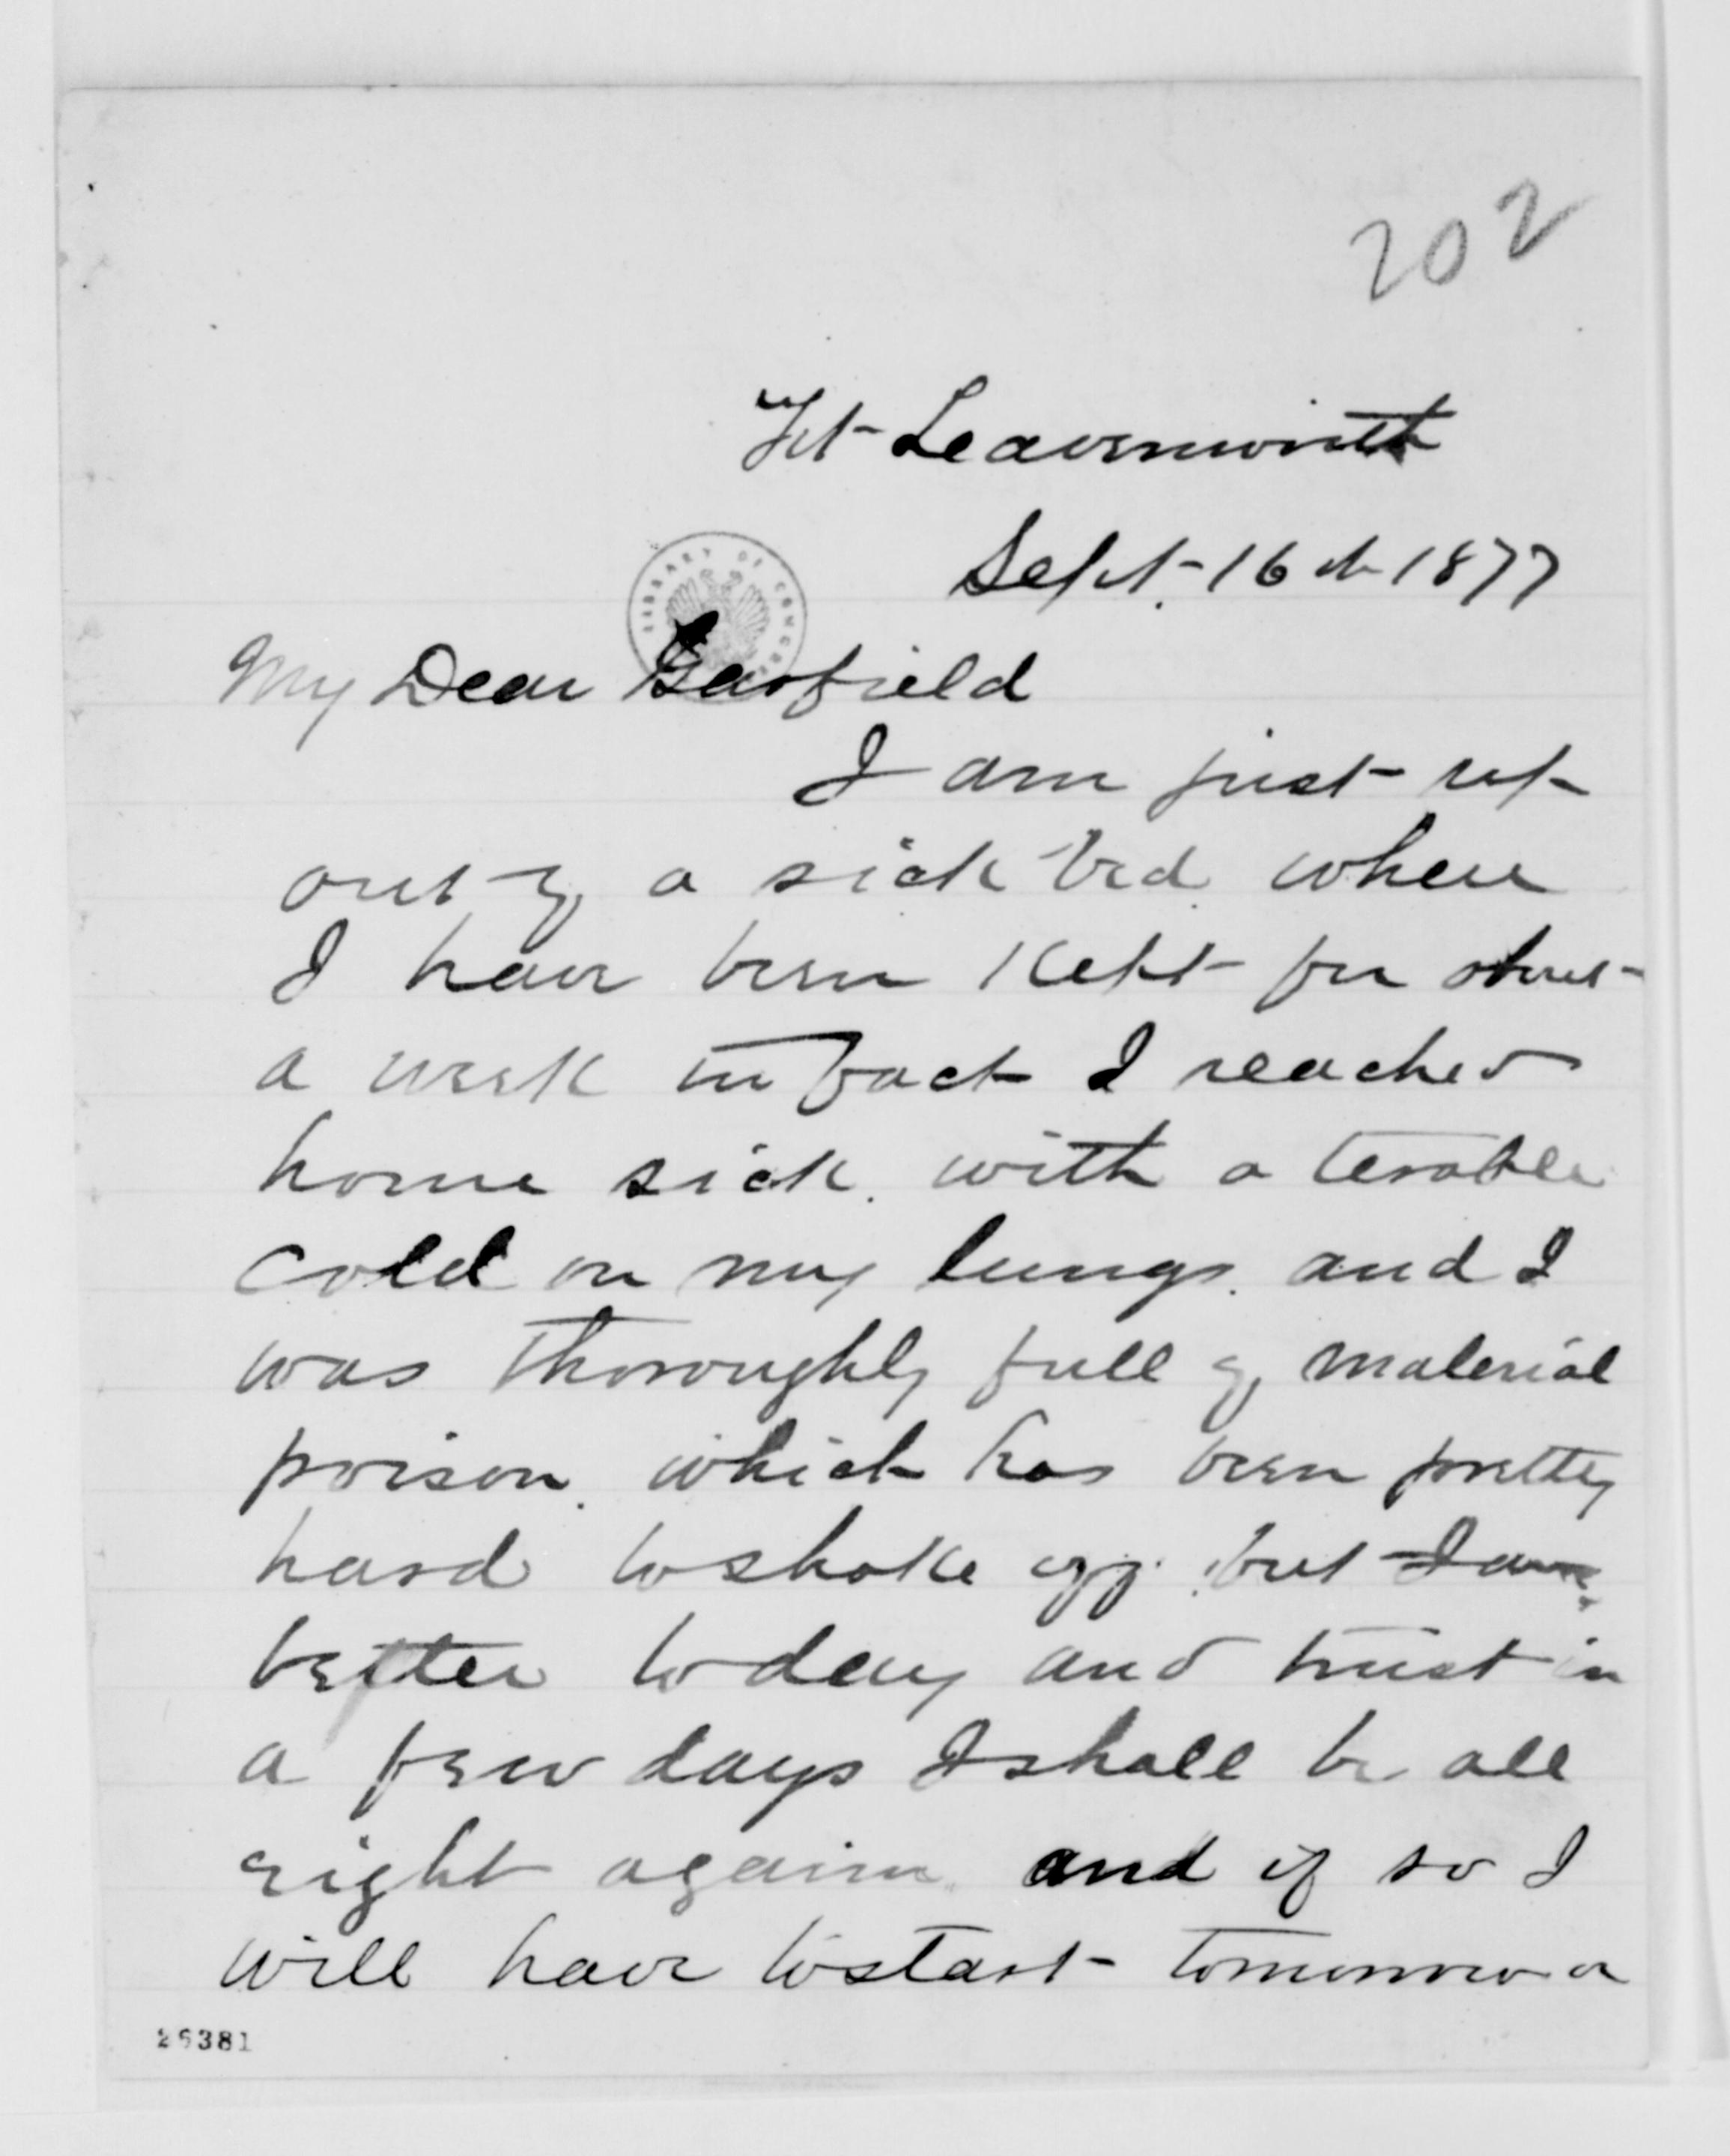 202
Ft Leavenworth
Sept. 16th 1877
LIBRARY OF CONGRESS
My Dear Garfield
I am just up
out of a sick bed where
I have been kept for about
a week in fact I reached
home sick. with a terrible
cold on my lungs. and I
was thoroughly full of malerial
poison. which has been pretty
hard to shake off. but I am
better to day and trust in
a few days I shall be all
right again. and if so I
will have to start tomorrow or
26381